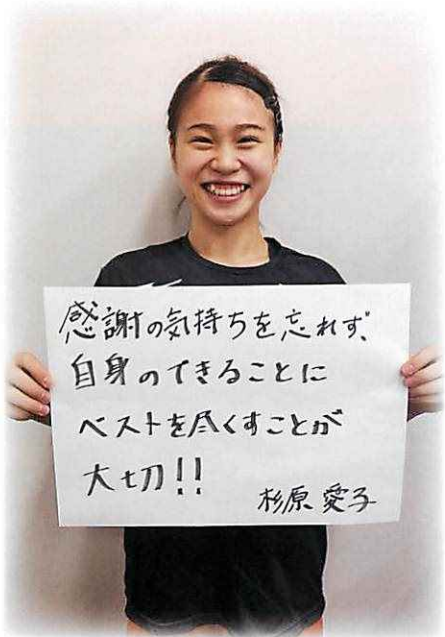 感謝の気持ちを忘れず、
自身のできることに
ベストを尽くすことが
大切!!
杉原愛子